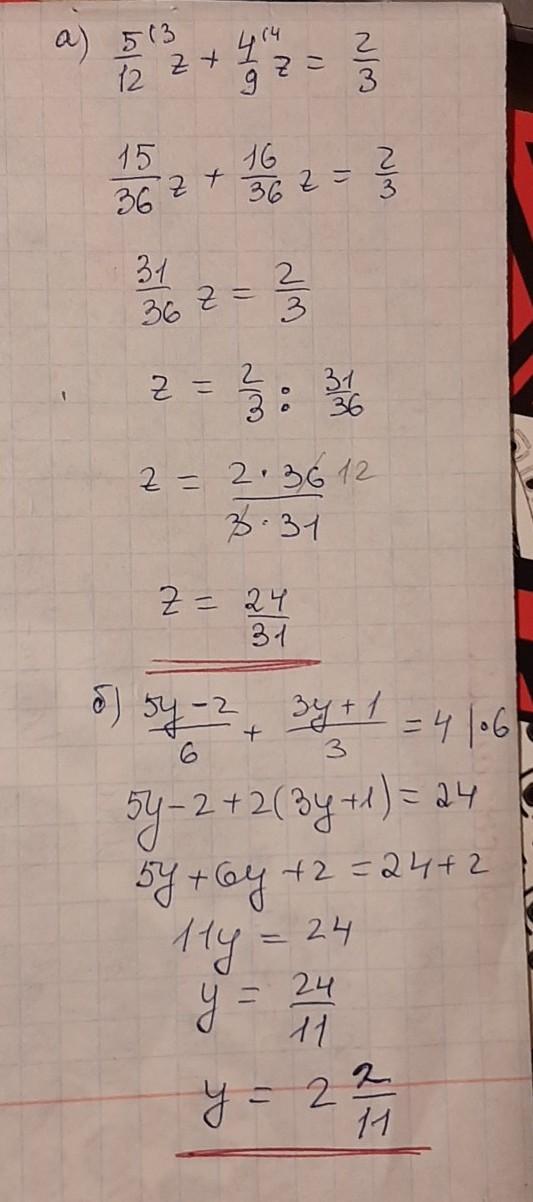 а) 5/12 (3 z + 4/9 (4 z = 2/3
15/36 z + 16/36 z = 2/3
31/36 z = 2/3
z = 2/3 : 31/36
z = 2 · 36 12 / 3 · 31
z = 24/31
б) 5y-2/6 + 3y+1/3 = 4 |·6
5y-2+2(3y+1) = 24
5y+6y+2 = 24+2
11y = 24
y = 24/11
y = 2 2/11